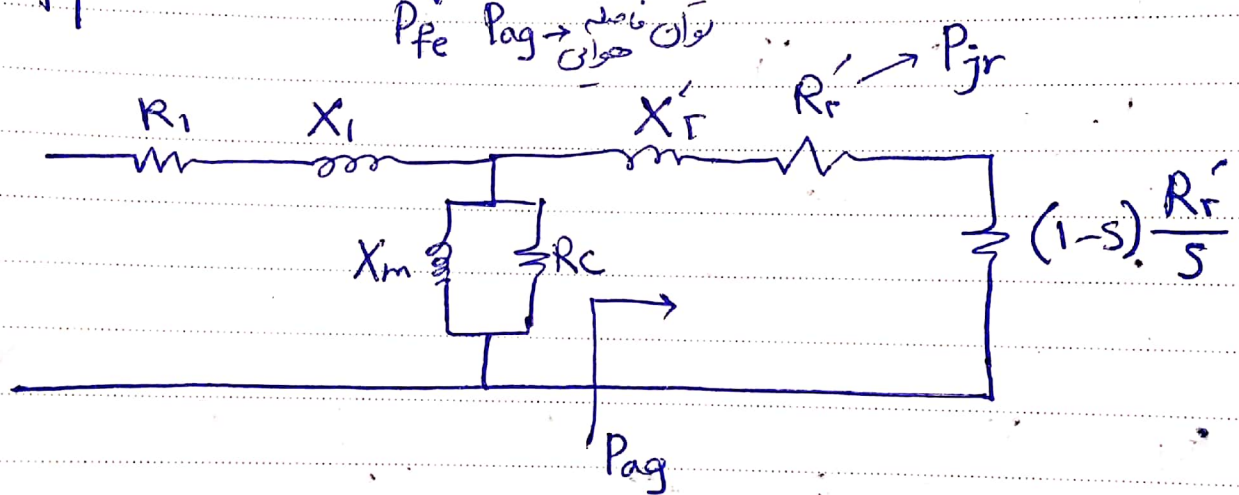 P_fe P_ag → توان فاصله هوایی
R₁ X₁ X'r R'r → P_jr
X_m R_c (1-S) R'r/S
P_ag